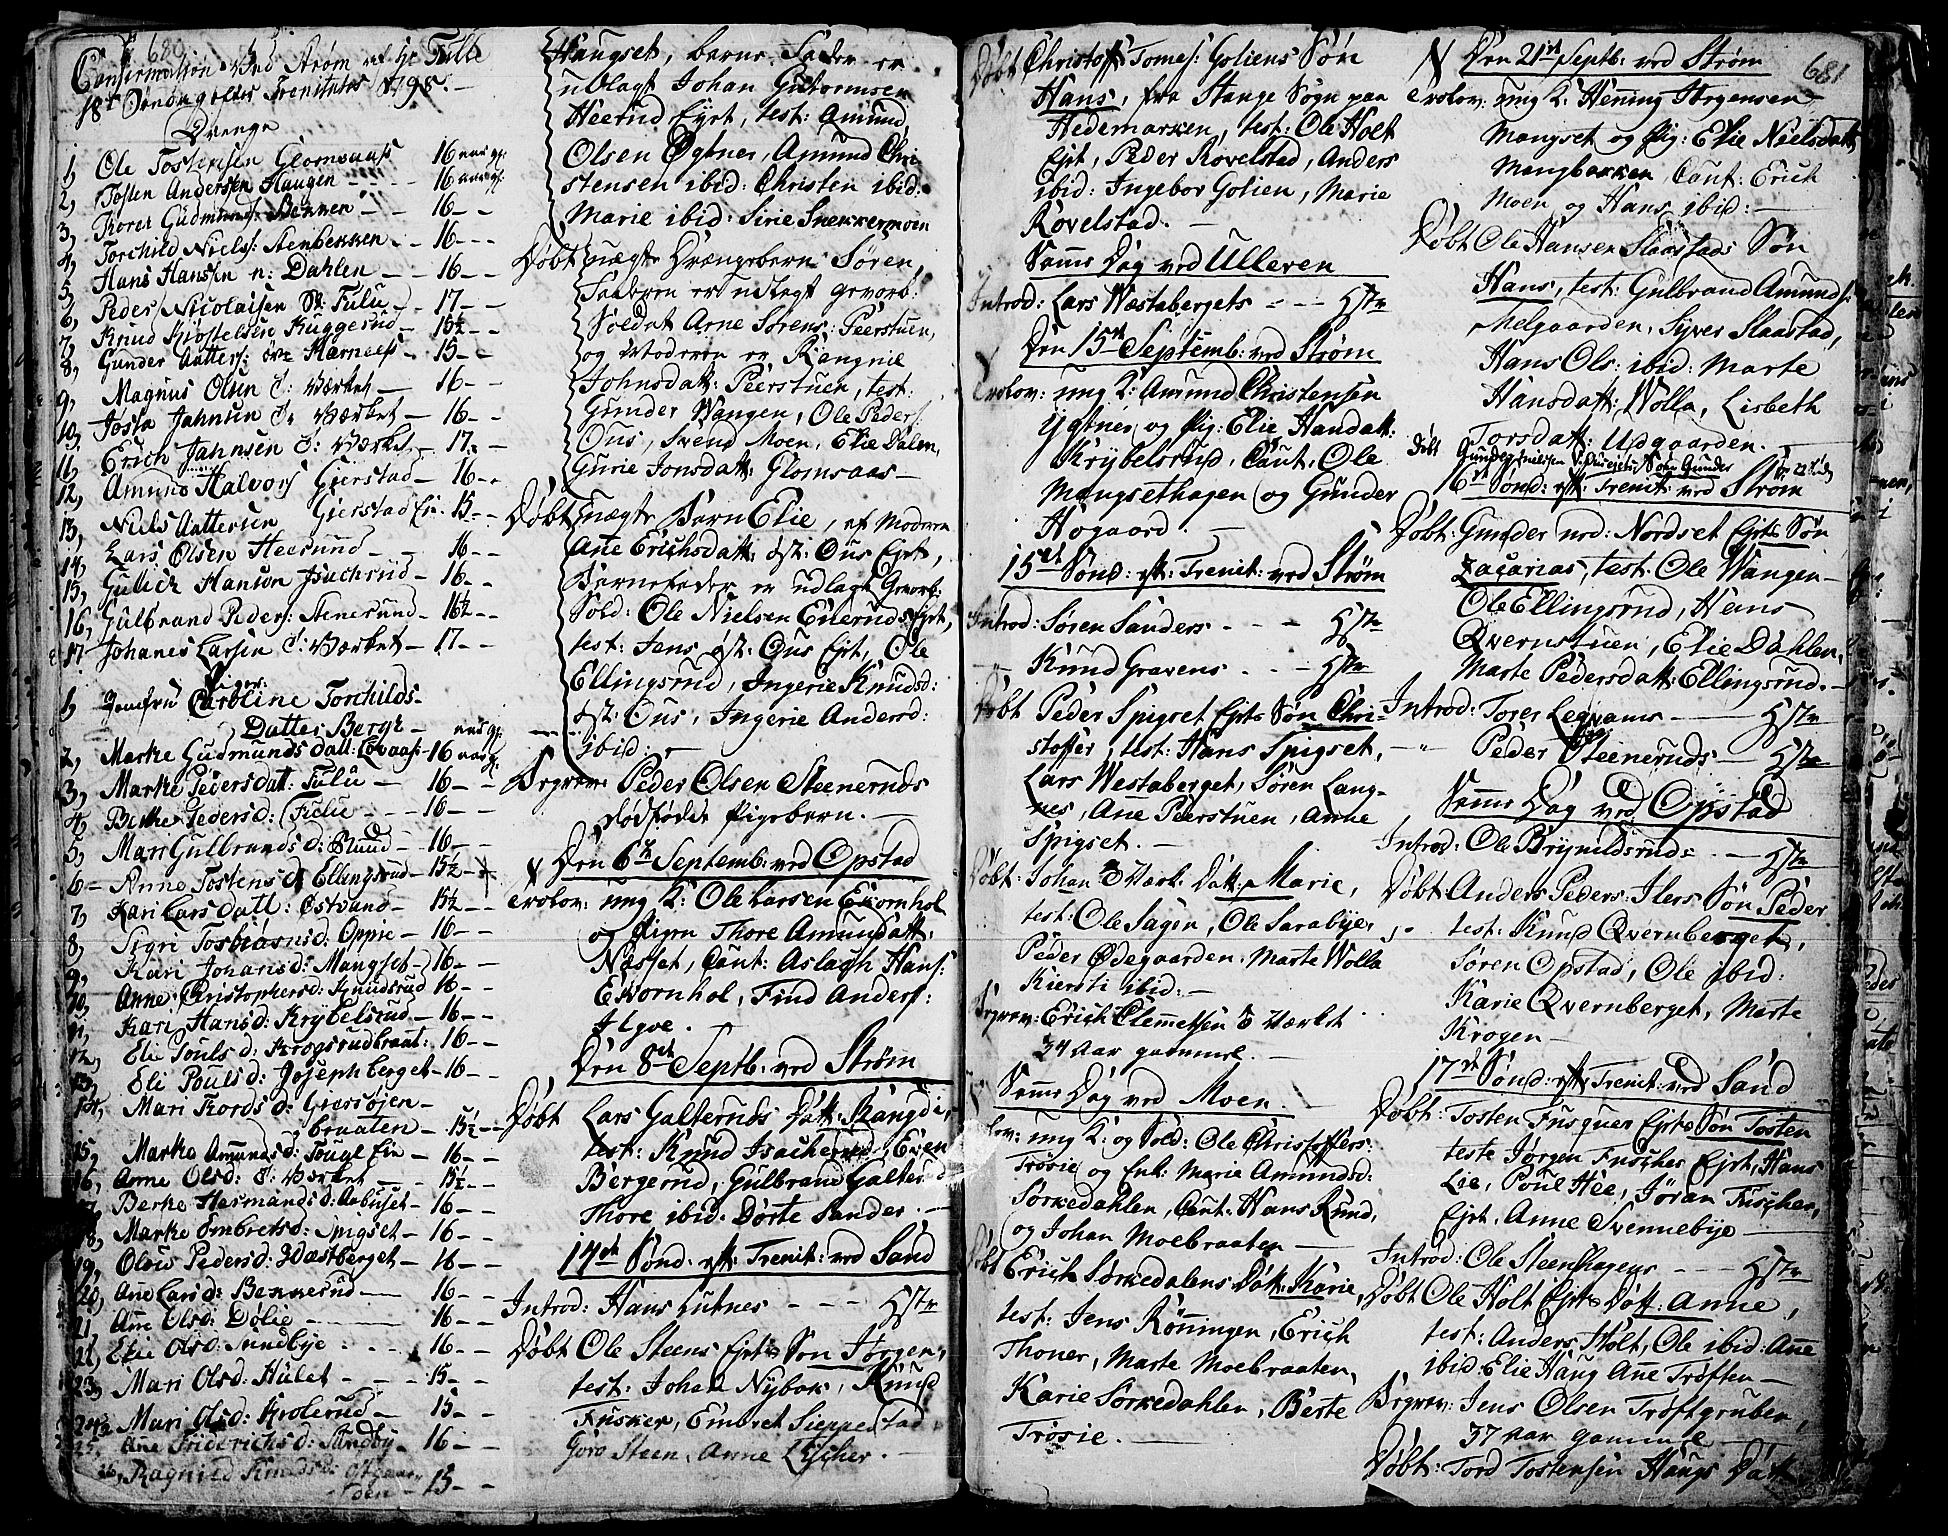 680
Confirmation ved Strøm
18de Søndag efter Trenitatis 1795.
Drenge
1, Ole Tostensen Glomsaas 16 aar gl:
2, Tosten Andersen Haugen 16 aar gl:
3, Torer Gudmunds: Bennen 16 - -
4, Torchild Niels: Stenbekken 16 - -
5, Hans Hansen n: Dahlen 16 - -
6, Peder Nicolaisen Fulu 17 - -
7, Knud Kiostelsen Kuggerud 15½ - -
8, Gunder Aatters: øvre Harnæss 15 - -
9, Magnus Olsen O: Værket 16 - -
10, Josta Jahnsen O: Værket 16 - -
11, Erich Jahnsen O: Værket 17 - -
12, Amund Halvors Gierstad 16 - -
13, Niels Aattersen Gierstad Ei: 15 - -
14, Lars Olsen Heerund 16 - -
15, Gulick Hanson Isachrud 16 - -
16, Gulbrand Peders: Stenerund 16½ - -
17 Johanes Larsen O: Værket 17 - -
Piger:
1, Jomfru Caroline Torchilds-
Datter Bergh
2, Marte Gudmunds datt: Lovaas 16 aar gl:
3, Marte Pedersdatt: Fulu 16 - -
4, Berte Peders d: Fulu 16 - -
5, Mari Gulbrands d: Slund 16 - -
6 Anne Tostens d: Ellingsrud 15½ - -
7, Kari Lars datt: Ostvand 15½ - -
8, Sigri Torbiørns d: Oppie 16 - -
9, Kari Johanis d: Mangset 16 - -
10, Anne Christophers d: Knudsrud 16 - -
11, Kari Hans d: Krybelsrud 16 - -
12, Eli Pouls d: Krogsrudbraat: 16 - -
13, Eli Pouls d: Josephberget 16 - -
14, Mari Tords d: Græsøjen-
braaten 15½ - -
15, Marte Amunds d: Fougl Ein 16 - -
16, Anne Ols d: O: Værket 15½ - -
17, Berte Hermands d: Aabuset 16 - -
18, Marte Embrets d: Spigset 16 - -
19, Olow Peders d: Wæstberget 16 - -
20, Ane Lars d: Bekkerud 16 - -
21, Ane Ols d: Dølie 16 - -
22, Elie Ols d: Sundbye 16 - -
23, Mari Ols d: Hulet 15 - -
24, Mari Ols d: Krolerud 15 - -
25, Ane Friderichs d: Sundby 16 - -
26, Ragnild Knuds d: Ostgaar-
den 15 - -
Haugset, barne Fader er
udlagt Johan Guttormsen
Heerud Ejrt, test: Amund
Olsen Ogtner, Amund Chri-
stensen ibid: Christen ibid:
Marie ibid: Sirie Snekkermoen
Døbt uægte Drængebarn Søren,
Faderen er udlagt gevorb:
Soldat Arne Sørens: Peerstuen,
og Moderen er Rangnil
Johnsdatt: Peerstuen, test:
Gunder Wangen, Ole Peders:
Ous, Svend Moen, Elie Dalen,
Gurie Jonsdatt: Glomsaas
Døbt uægte Barn Elie, af Moderen
Ane Erichsdatt: øst: Ous Ejrt,
Barnefader er udlagt Gevorb:
Sold: Ole Nielsen Euerud Ejrt,
test: Jens øst: Ous Ejrt, Ole
Ellingsrud, Ingerie Knudsd:
øst: Ous, Ingerie Andersd:
ibid:
Begrav: Peder Olsen Steeneruds
dødføde Pigebarn.
N Den 6te Septemb: ved Opstad
trolov: ung K: Ole Larsen Ekornhol
og Pigen Thore Amundatt:
Næsset, Caut: Aslagh Hans:
Ekornhol, Find Anders:
Algoe.
Den 8de Septb: ved Strøm
Døbt Lars Galteruds Datt: Rangdi,
test: Knud Isacherud, Even
Bergerud, Gulbrand Galterud
Thore ibid: Dorte Sander.
14de Sønd: eft: Trenit: ved Sand
Introd: Hans Lutnes
Døbt Ole Steens Ejrts Søn Jørgen,
test: Johan Nybak, Knud
Fusker, Embret Sieppestad,
Goro Steen, Anne Escher.
Døbt Christoff: Tomes: Goliens Søn
Hans, fra Stange Sogn paa
Hedemarken, test: Ole Holt
Ejrt, Peder Rovelstad, Anders
ibid: Ingebor Golien, Marie
Rovelstad.
Samme Dag ved Ulleren
Introd: Lars Wæstabergets
Den 15de Septemb: ved Strøm
trolov: ung K: Amund Christensen
Ygtner og Pig: Elie Hansdatt:
Krybelsrud, Caut: Ole
Mangsethagen og Gunder
Høgaard.
15de Sønd: eft: Trenit: ved Strøm
Introd: Søren Sanders
Knud Gravens
Døbt Peder Spigset Ejrts Søn Chri-
stoffer, test: Hans Spigset,
Lars Westaberget, Søren Lang-
nes, Ane Peerstuen, Anne
Spigset.
Døbt: Johan O Værk: Datt: Marie,
test: Ole Sagen, Ole Sarabye,
Peder Ødegaarden, Marte Wolla
Kiersti ibid:
Begrav: Erich Clemetsen O Værket
34 Aar gammel.
Samme Dag ved Moen.
trolov: ung K: og Sold: Ole Christoffers:
Trøsie og Enk: Marie Amundsd:
Sørkedahlen, Caut: Hans Rund,
og Johan Moebraaten
Døbt Erich Sørkedalens Datt: Karie,
test: Jens Rønningen, Erich
Thoner, Marte Moebraaten,
Karie Sørkedahlen, Berte
Trøsie.
681
N Den 21de Septb: ved Strøm
trolov: ung K: Hening Jørgensen
Mangset og Pig: Elie Nielsdatt:
Mangbakken, Caut: Erich
Moen og Hans ibid:
Døbt Ole Hansen Slaastads Søn
Hans, test: Gulbrand Amunds:
Melgaarden, Syver Slaastad,
Hans Ols: ibid: Marte
Hansdatt: Wolla, Lisbeth
Torsdatt: Udgaarden.
16de Sønd: eft: Trenit: ved Strøm
Døbt: Gunder ned: Nordset Ejrts Søn
Zacarias, test: Ole Wangen
Ole Ellingsrud, Hans
Qvernstuen, Elie Dahlen,
Marte Pedersdatt: Ellingsrud.
Introd: Torer Legvams
Peder Steeneruds
Samme Dag ved Opstad
Introd: Ole Brynildsruds
Døbt: Anders Peders: Ilers Søn Peder
test: Knud Qvernberget,
Søren Opstad, Ole ibid:
Karie Qvernberget, Marte
Krogen
17de Sønd: eft: Trenit: ved Sand
Døbt: Tosten Fusquer Ejrts Søn Tosten
teste Jørgen Fuscher Ejrt, Hans
Lie, Poul Hee, Jøran Fuscher,
Ejrt, Anne Svennebye
Introd: Ole Steenhagens
Døbt Ole Holt Ejrts Datt: Anne,
test: Anders Holt, Ole ibid: Ane
ibid: Elie Haug Ane Trøften
Begrav: Jens Olsen Trøftgruben,
37 Aar gammel
Døbt: Tord Tostensen Haugs Datt